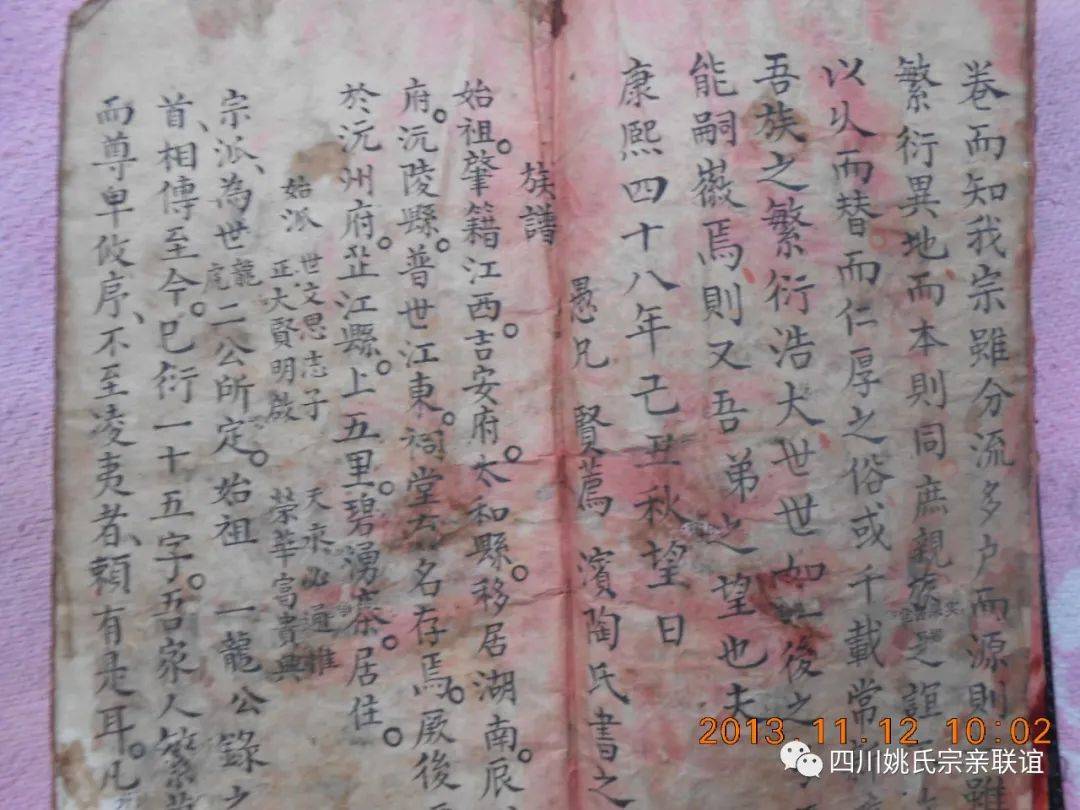 卷而知我宗雖分流多户而源則
繁衍異地而本則同庶親族之誼
雖
以久而替而仁厚之俗或千載常
吾族之繁衍浩大世世如一後之
能嗣徽焉則又吾弟之望也夫
康熙四十八年己丑秋望日
愚兄 賢薦 濱陶氏書
族譜
始祖。肇籍江西。吉安府。太和縣。移居湖南。辰
府。沅陵縣。普世江東。祠堂 名存焉。厥後
於沅州府。芷江縣。上五里。碧湧 居住。
始派 世文思志子 天 必通
正大賢明啟 榮華富貴興
宗派、為世龍虎二公所定。始祖 一龍公錄之
首、相傳至今。已衍一十五字。吾家人繁
而尊卑攸序、不至凌夷者、賴有是耳。凡
2013.11.12 10:02
四川姚氏宗亲联谊